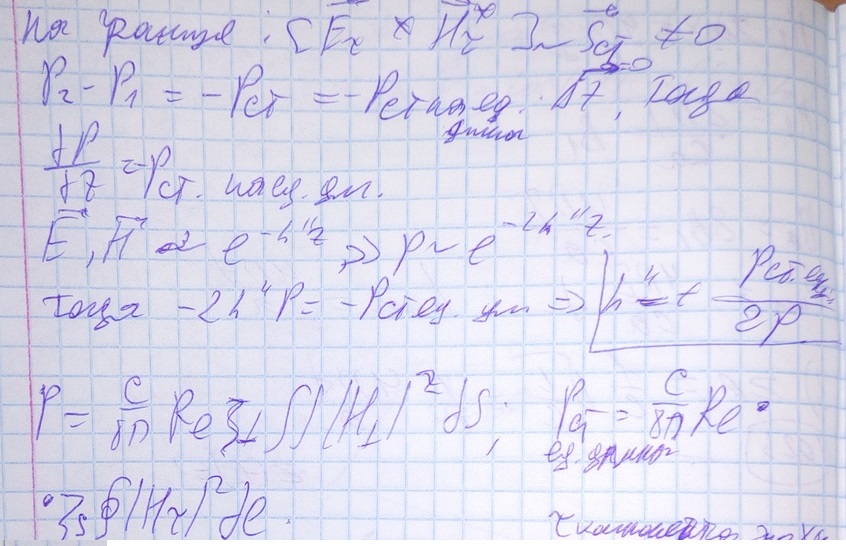 На границе: [E⃗τ × H⃗τ*] ~ S⃗ст ≠ 0
P₂ - P₁ = -Pст = -Pст на ед. длины · ΔZ, тогда
dP/dZ = -Pст. на ед. дл.
E⃗, H⃗ ~ e^(-h''z) => P ~ e^(-2h''z).
тогда -2h''P = -Pст ед. дл => h'' = + Pст.ед.дл. / 2P
P = c/8π Re ζ⊥ ∬ |H⊥|² dS; Pст ед. длины = c/8π Re •
• ζs ∮ |Hτ|² dl.